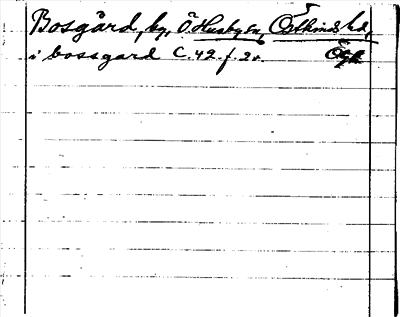 Bosgård, by, Ö. Husby sn, Östkinds hd,
i bossgard C. 42. f. 2v. Ögl.